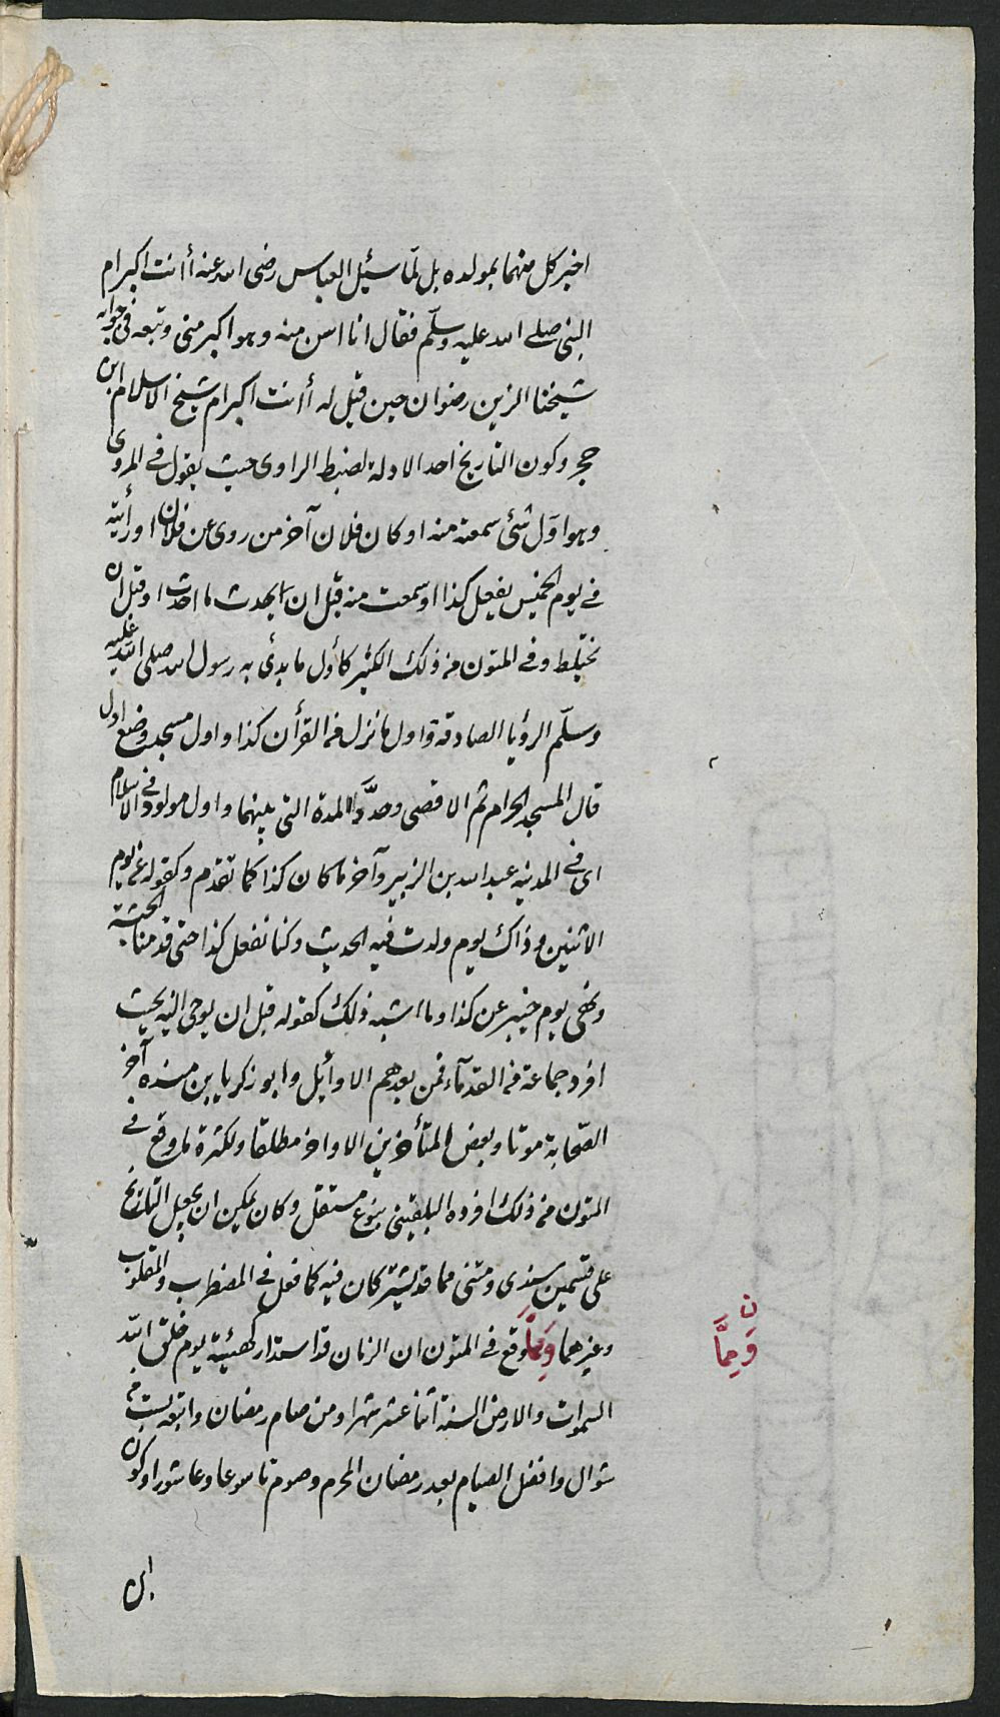 اخبر كل منهما بمولده بل لمّا سئيل العباس رضى الله عنه أأنت اكبر ام
النبى صلى الله عليه وسلّم فقال انا اسن منه وهو اكبر منى وتبعه فى جوابه
شيخنا الزين رضوان حين قيل له أأنت اكبر ام شيخ الاسلام ابن
حجر وكون التاريخ احد الادلة لضبط الراوى حيث يقول فى المروى
وهو اول شئ سمعته منه او كان فلان آخر من روى عن فلان او رأيته
فى يوم الخميس يفعل كذا او سمعت منه قبل ان يحدث ما احدث او قبل ان
يختلط وفى المتون من ذلك الكثير كأول ما بدئ به رسول الله صلى الله عليه
وسلّم الرؤيا الصادقة واول ما نزل من القرأن كذا واول مسجد وضع اول
قال المسجد الحرام ثم الاقصى وحدَّد المدة التى بينهما واول مولود فى الاسلام
اى فى المدينه عبد الله بن الزبير وآخر ما كان كذا كما تقدم وكقوله عن يوم
الاثنين وذاك يوم ولدت فيه الحديث وكنا نفعل كذا حتى قدمنا الحبشة
ونهى يوم خيبر عن كذا وما اشبه ذلك كقوله قبل ان يوحى اليه بحيث
افرد جماعة من القدمآء فمن بعدهم الاوأيل وابو زكريا بن منده آخر
الصّحابة موتا وبعض المتأخرين الاواخر مطلقا ولكثرة ما وقع فى
المتون من ذلك افرده البلقينى بنوع مستقل وكان يمكن ان يجعل التاريخ
على قسمين سندى ومتنى مما قد يشتركان فيه كما فعل فى المضطرب والمقلوب
وغيرهما وَمِمَّا وقع فى المتون ان الزمان قد استدار كهيئة يوم خلق الله
السموات والارض السنة اثنا عشر شهرا ومن صام رمضان واتبعه بست من
شوال وافضل الصيام بعد رمضان المحرم وصوم تاسوعا وعاشورا وكون
ن
وَمِمَّا
ان